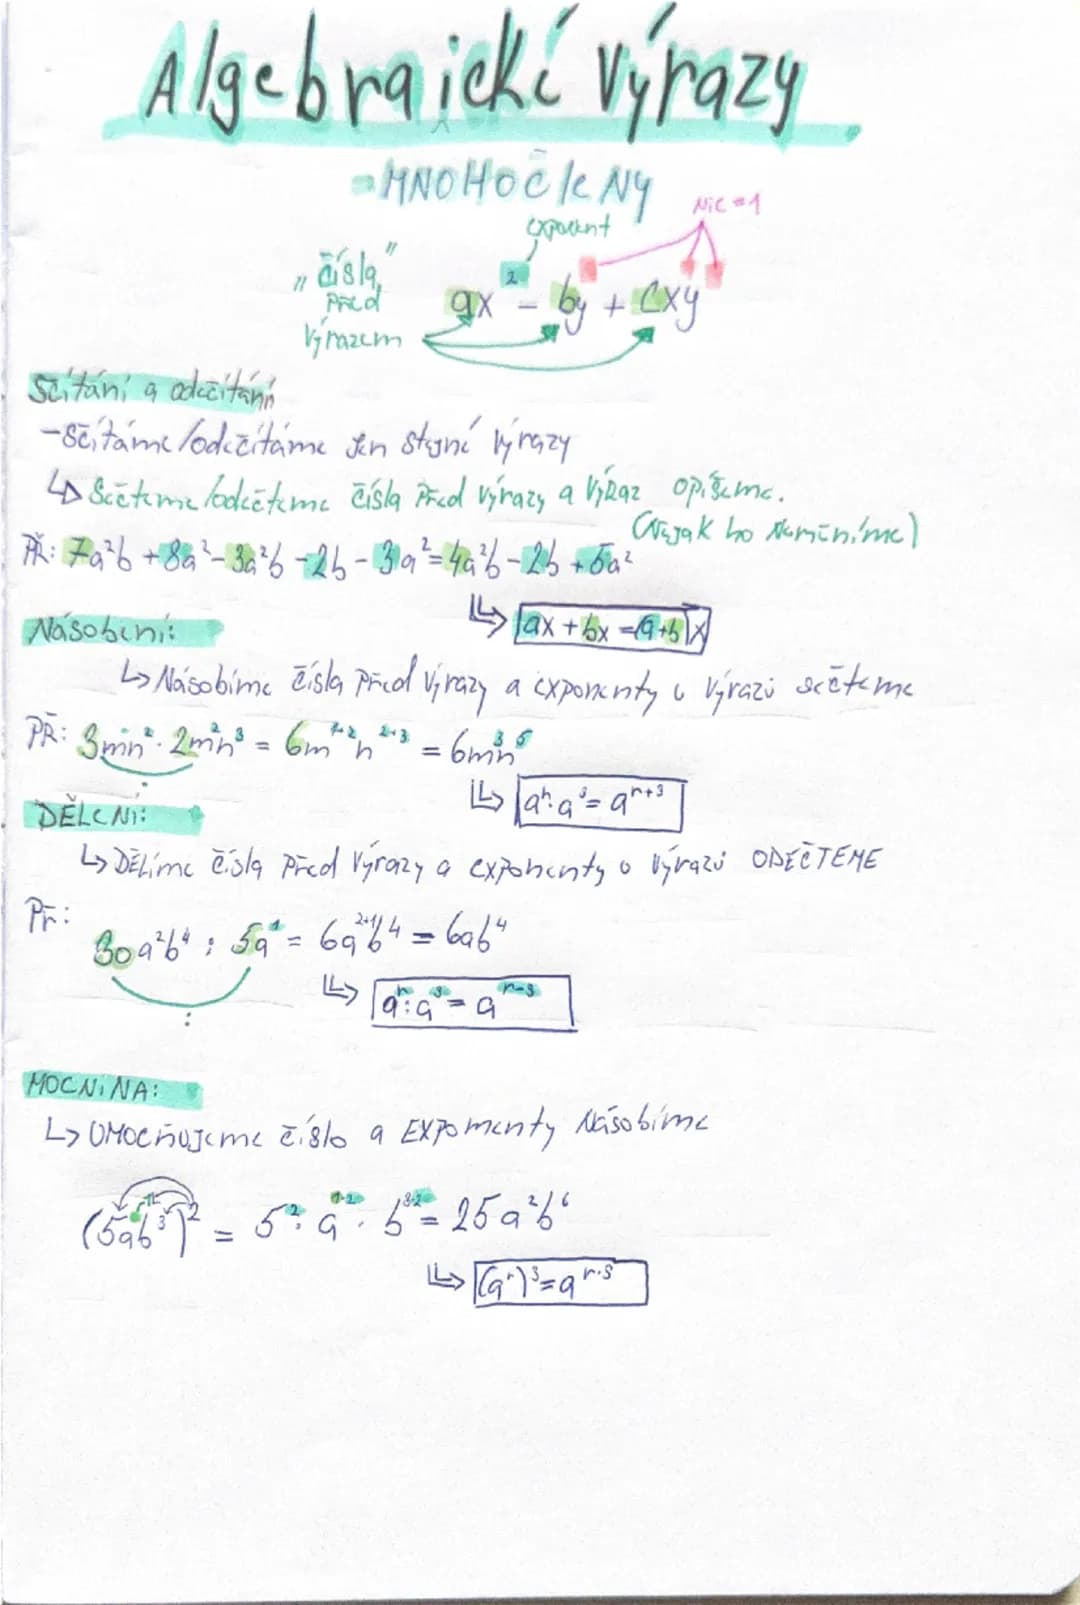 Algebraické výrazy
- MNOHOČleNY
exponent
Nic = 1
„čísla"
Před
Výrazem
ax² - by + cxy
Sčítání a odečítání
- Sčítáme/odečítáme jen stejné výrazy
↳ Sečteme/odečteme čísla Před výrazy a výraz opíšeme.
(Nijak ho neměníme)
PŘ: 7a²b + 8a² - 3a²b - 2b - 3a² = 4a²b - 2b + 5a²
↳ ax + bx = (a+b)x
Násobení:
↳ Násobíme čísla před výrazy a exponenty u výrazů sečteme
PŘ: 3mn² · 2m²n³ = 6m¹⁺²n²⁺³ = 6m³n⁵
↳ aʳ·aˢ = aʳ⁺ˢ
DĚLENí:
↳ DĚLíme čísla před výrazy a exponenty u výrazů ODEČTEME
Př:
30a²b⁴ : 5a¹ = 6a²⁺¹b⁴ = 6ab⁴
:
↳ aʳ:aˢ = aʳ⁻ˢ
MOCNiNA:
↳ UMOCňujeme číslo a EXPonenty Násobíme
(5ab³)² = 5² · a¹·² · b³·² = 25a²b⁶
↳ (aʳ)ˢ = aʳ·ˢ